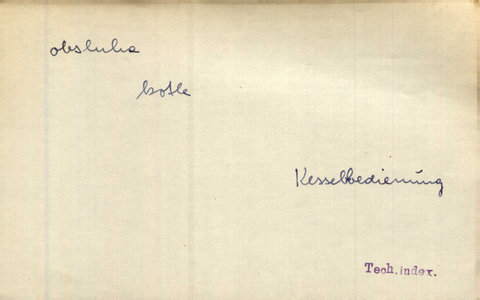 obsluha
kotle
Kesselbedienung
Tech.index.